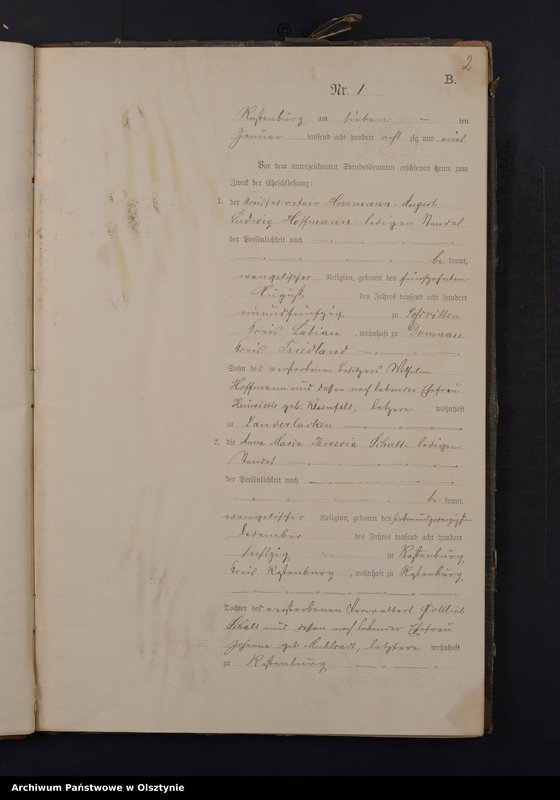 2
B.
Nr. 1
Rastenburg am sieben ten
Januar tausend acht hundert acht zig und eins
Vor dem unterzeichneten Standesbeamten erschienen heute zum
Zweck der Eheschließung:
1. der Herrmann August
Ludwig Hoffmann ledigen Standes
der Persönlichkeit nach
be kannt,
evangelischer Religion, geboren den fünfzehnten
August des Jahres tausend acht hundert
neunundfünfzig zu
Kreis Labiau, wohnhaft zu Domnau
Kreis Friedland
Sohn des verstorbenen Besitzers Wilhelm
Hoffmann und dessen noch lebender Ehefrau
Henriette geb. letztere wohnhaft
zu
2. die Anna Maria Theresia ledigen
Standes
der Persönlichkeit nach
be kannt,
evangelischer Religion, geboren den siebenundzwanzigsten
December des Jahres tausend acht hundert
sechszig zu Rastenburg
Kreis Rastenburg, wohnhaft zu Rastenburg
Tochter des verstorbenen Gottlieb
und dessen noch lebender Ehefrau
Johanna geb. letztere wohnhaft
zu Rastenburg
Archiwum Państwowe w Olsztynie